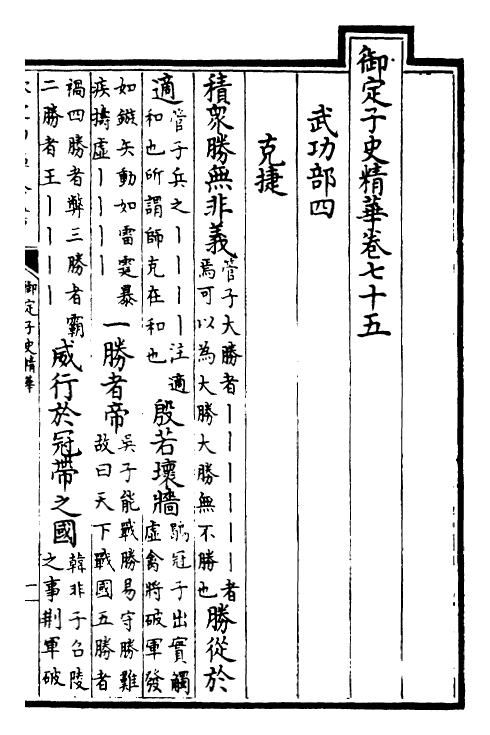 御定子史精華卷七十五
武功部四
克捷
積衆勝無非義
管子大勝者丨丨丨丨丨丨者
焉可以為大勝大勝無不勝也
勝從於
適
管子兵之丨丨丨丨注適
和也所謂師克在和也
殷若壞牆
鶡冠子出實觸
虛禽將破軍發
如鏃矢動如雷霆暴
疾擣虛丨丨丨丨
一勝者帝
吳子能戰勝易守勝難
故曰天下戰國五勝者
禍四勝者弊三勝者霸
二勝者王丨丨丨丨
威行於冠帶之國
韓非子召陵
之事荆軍破
御定子史精華
一